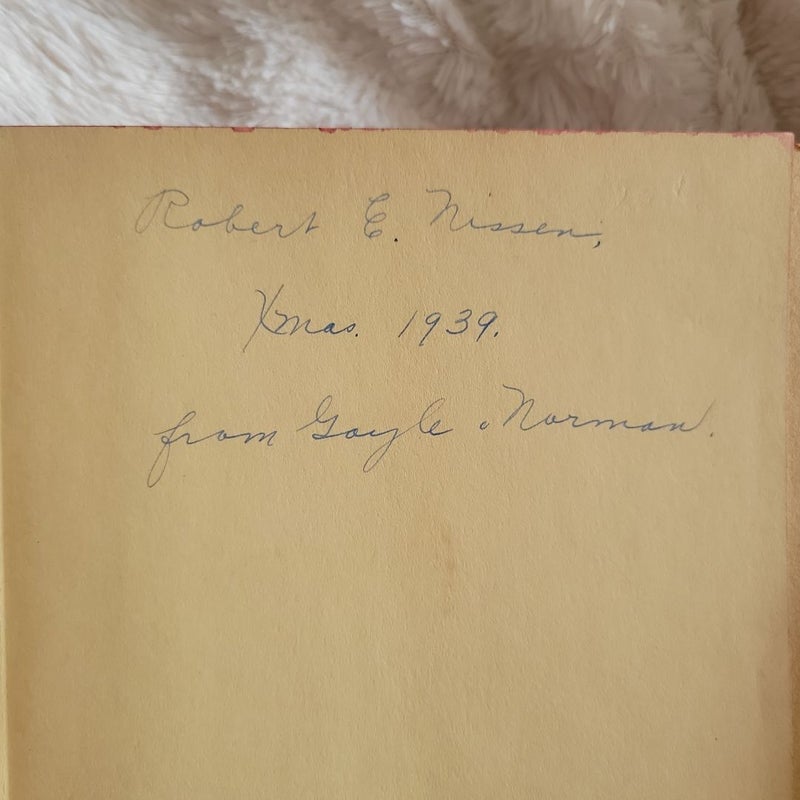 Robert E. Nissen,
Xmas. 1939.
from Gayle & Norman.